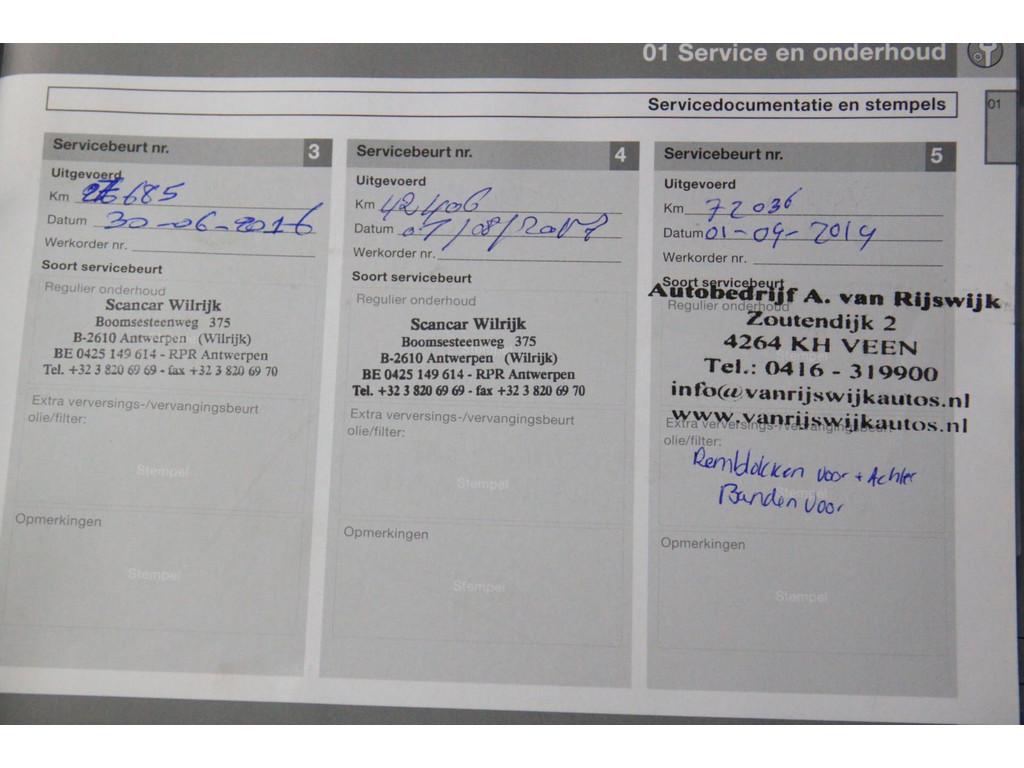 01 Service en onderhoud
Servicedocumentatie en stempels
01
Servicebeurt nr. 3
Uitgevoerd
Km 685
Datum 30-06-2016
Werkorder nr.
Soort servicebeurt
Regulier onderhoud
Scancar Wilrijk
Boomsesteenweg 375
B-2610 Antwerpen (Wilrijk)
BE 0425 149 614 - RPR Antwerpen
Tel. +32 3 820 69 69 - fax +32 3 820 69 70
Extra verversings-/vervangingsbeurt
olie/filter:
Stempel
Opmerkingen
Stempel
Servicebeurt nr. 4
Uitgevoerd
Km 42406
Datum 07/08/2017
Werkorder nr.
Soort servicebeurt
Regulier onderhoud
Scancar Wilrijk
Boomsesteenweg 375
B-2610 Antwerpen (Wilrijk)
BE 0425 149 614 - RPR Antwerpen
Tel. +32 3 820 69 69 - fax +32 3 820 69 70
Extra verversings-/vervangingsbeurt
olie/filter:
Stempel
Opmerkingen
Stempel
Servicebeurt nr. 5
Uitgevoerd
Km 72036
Datum 01-04-2019
Werkorder nr.
Soort servicebeurt
Autobedrijf A. van Rijswijk
Regulier onderhoud
Zoutendijk 2
4264 KH VEEN
Tel.: 0416 - 319900
info@vanrijswijkautos.nl
www.vanrijswijkautos.nl
Extra verversings-/vervangingsbeurt
olie/filter:
Remblokken voor + Achter
Banden voor
Stempel
Opmerkingen
Stempel